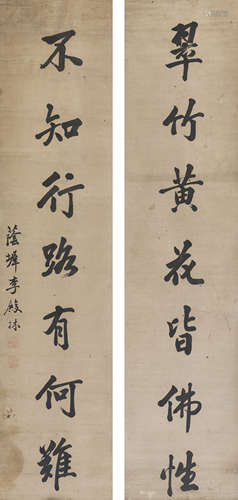 翠竹黄花皆佛性
不知行路有何難
蔭墀李殿林